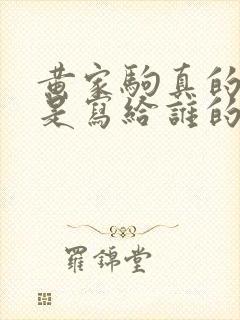 黄家駒真的
是寫給誰的
羅錦堂